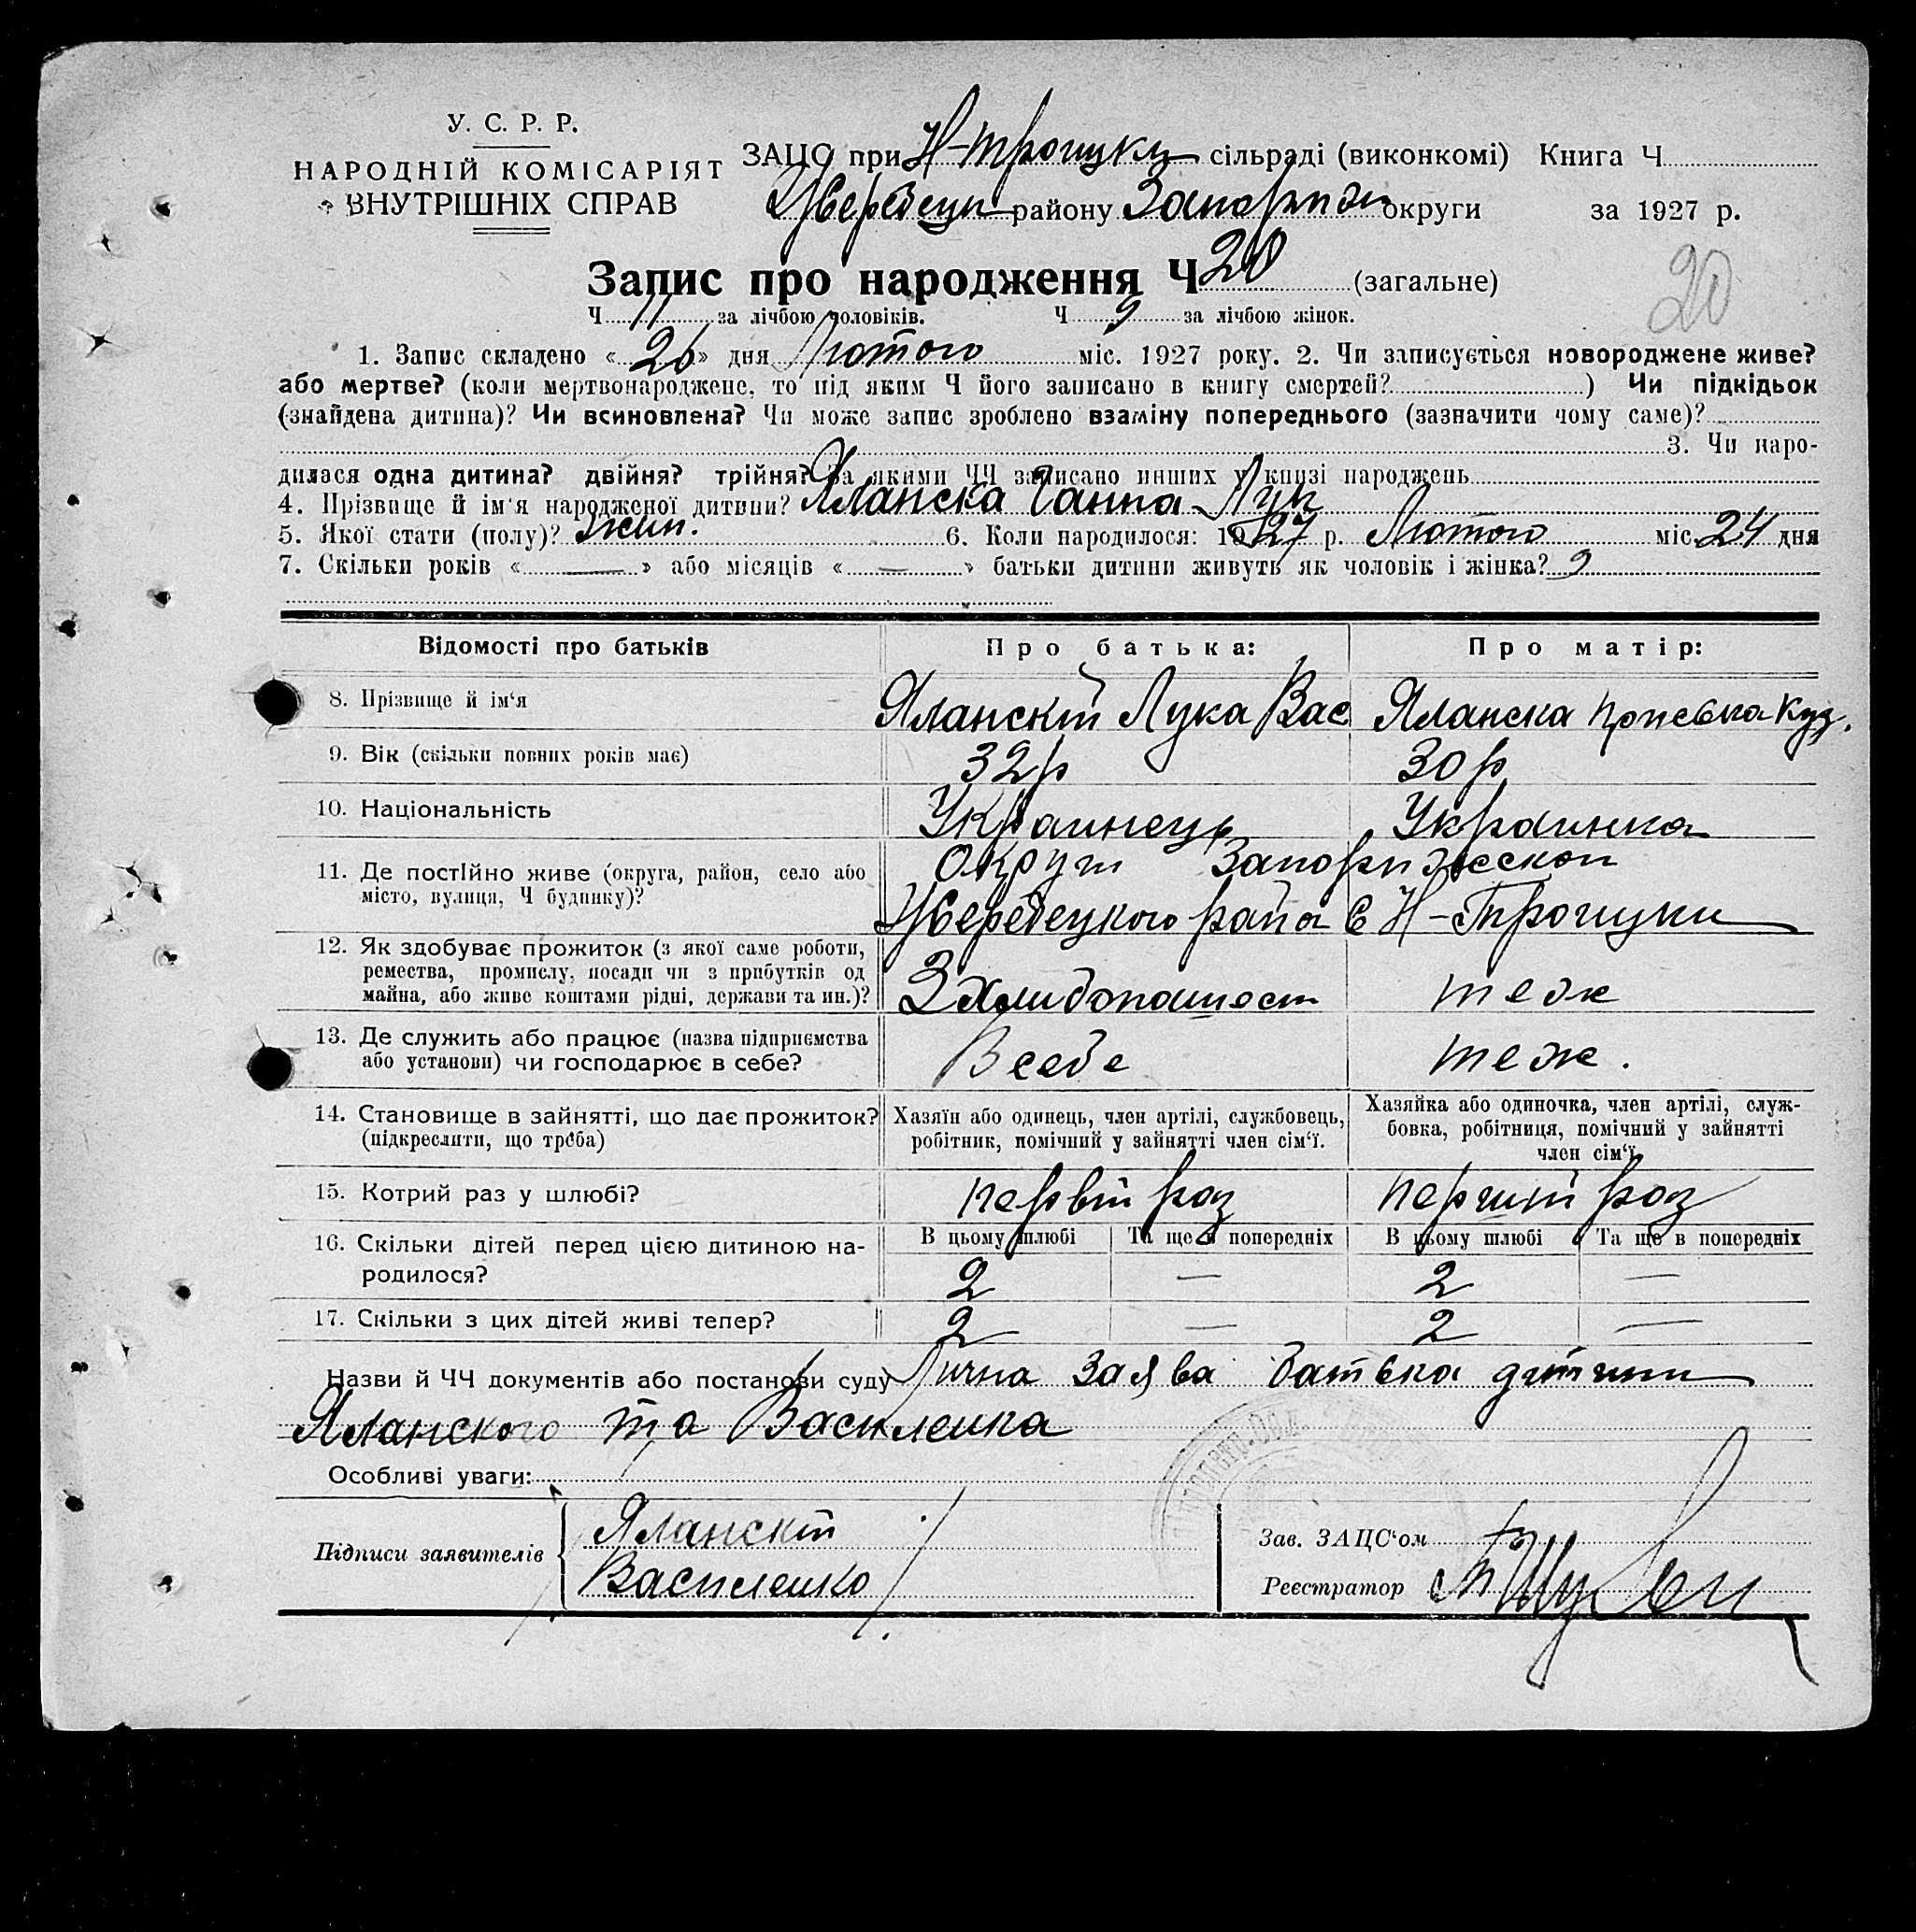 У. С. Р. Р.
НАРОДНІЙ КОМІСАРІЯТ
ВНУТРІШНІХ СПРАВ
ЗАЦС при Н-Троицки сільраді (виконкомі) Книга Ч
району округи за 1927 р.
Запис про народження Ч 20 (загальне)
20
Ч 11 за лічбою чоловіків. Ч 9 за лічбою жінок.
1. Запис складено « 26 » дня Лютого міс. 1927 року. 2. Чи записується новороджене живе?
або мертве? (коли мертвонароджене, то під яким Ч його записано в книгу смертей? ) Чи підкідьок
(знайдена дитина)? Чи всиновлена? Чи може запис зроблено взаміну попереднього (зазначити чому саме)?
3. Чи наро-
дилася одна дитина? двійня? трійня? За якими ЧЧ записано инших у книзі народжень
4. Прізвище й ім'я народженої дитини? Яланска Ганна Лук
5. Якої стати (полу)? жин. 6. Коли народилося: 1927 р. Лютого міс. 24 дня
7. Скільки років « — » або місяців « — » батьки дитини живуть як чоловік і жінка? 9
Відомості про батьків Про батька: Про матір:
8. Прізвище й ім'я Яланскій Лука Вас Яланска Куз.
9. Вік (скільки повних років має) 32 р 30 р
10. Національність Украинець Украинка
11. Де постійно живе (округа, район, село або Округи Запорижскои
місто, вулиця, Ч будинку)? райа с Н-Троицки
12. Як здобуває прожиток (з якої саме роботи,
ремества, промислу, посади чи з прибутків од
майна, або живе коштами рідні, держави та ин.)? З хлибопашест теж
13. Де служить або працює (назва підприємства
або установи) чи господарює в себе? В себе теж.
14. Становище в зайнятті, що дає прожиток?
(підкреслити, що треба)
Хазяїн або одинець, член артілі, службовець,
робітник, помічний у зайнятті член сім'ї.
Хазяйка або одиночка, член артілі, служ-
бовка, робітниця, помічний у зайнятті
член сім'ї.
15. Котрий раз у шлюбі? первій раз перший раз
16. Скільки дітей перед цією дитиною на-
родилося?
В цьому шлюбі Та ще в попередніх В цьому шлюбі Та ще в попередніх
2 — 2 —
17. Скільки з цих дітей живі тепер? 2 — 2 —
Назви й ЧЧ документів або постанови суду Лична заява батька дитини
Яланского та Василенка
Особливі уваги:
Підписи заявителів
Яланскій
Василенко
Зав. ЗАЦС'ом
Реєстратор